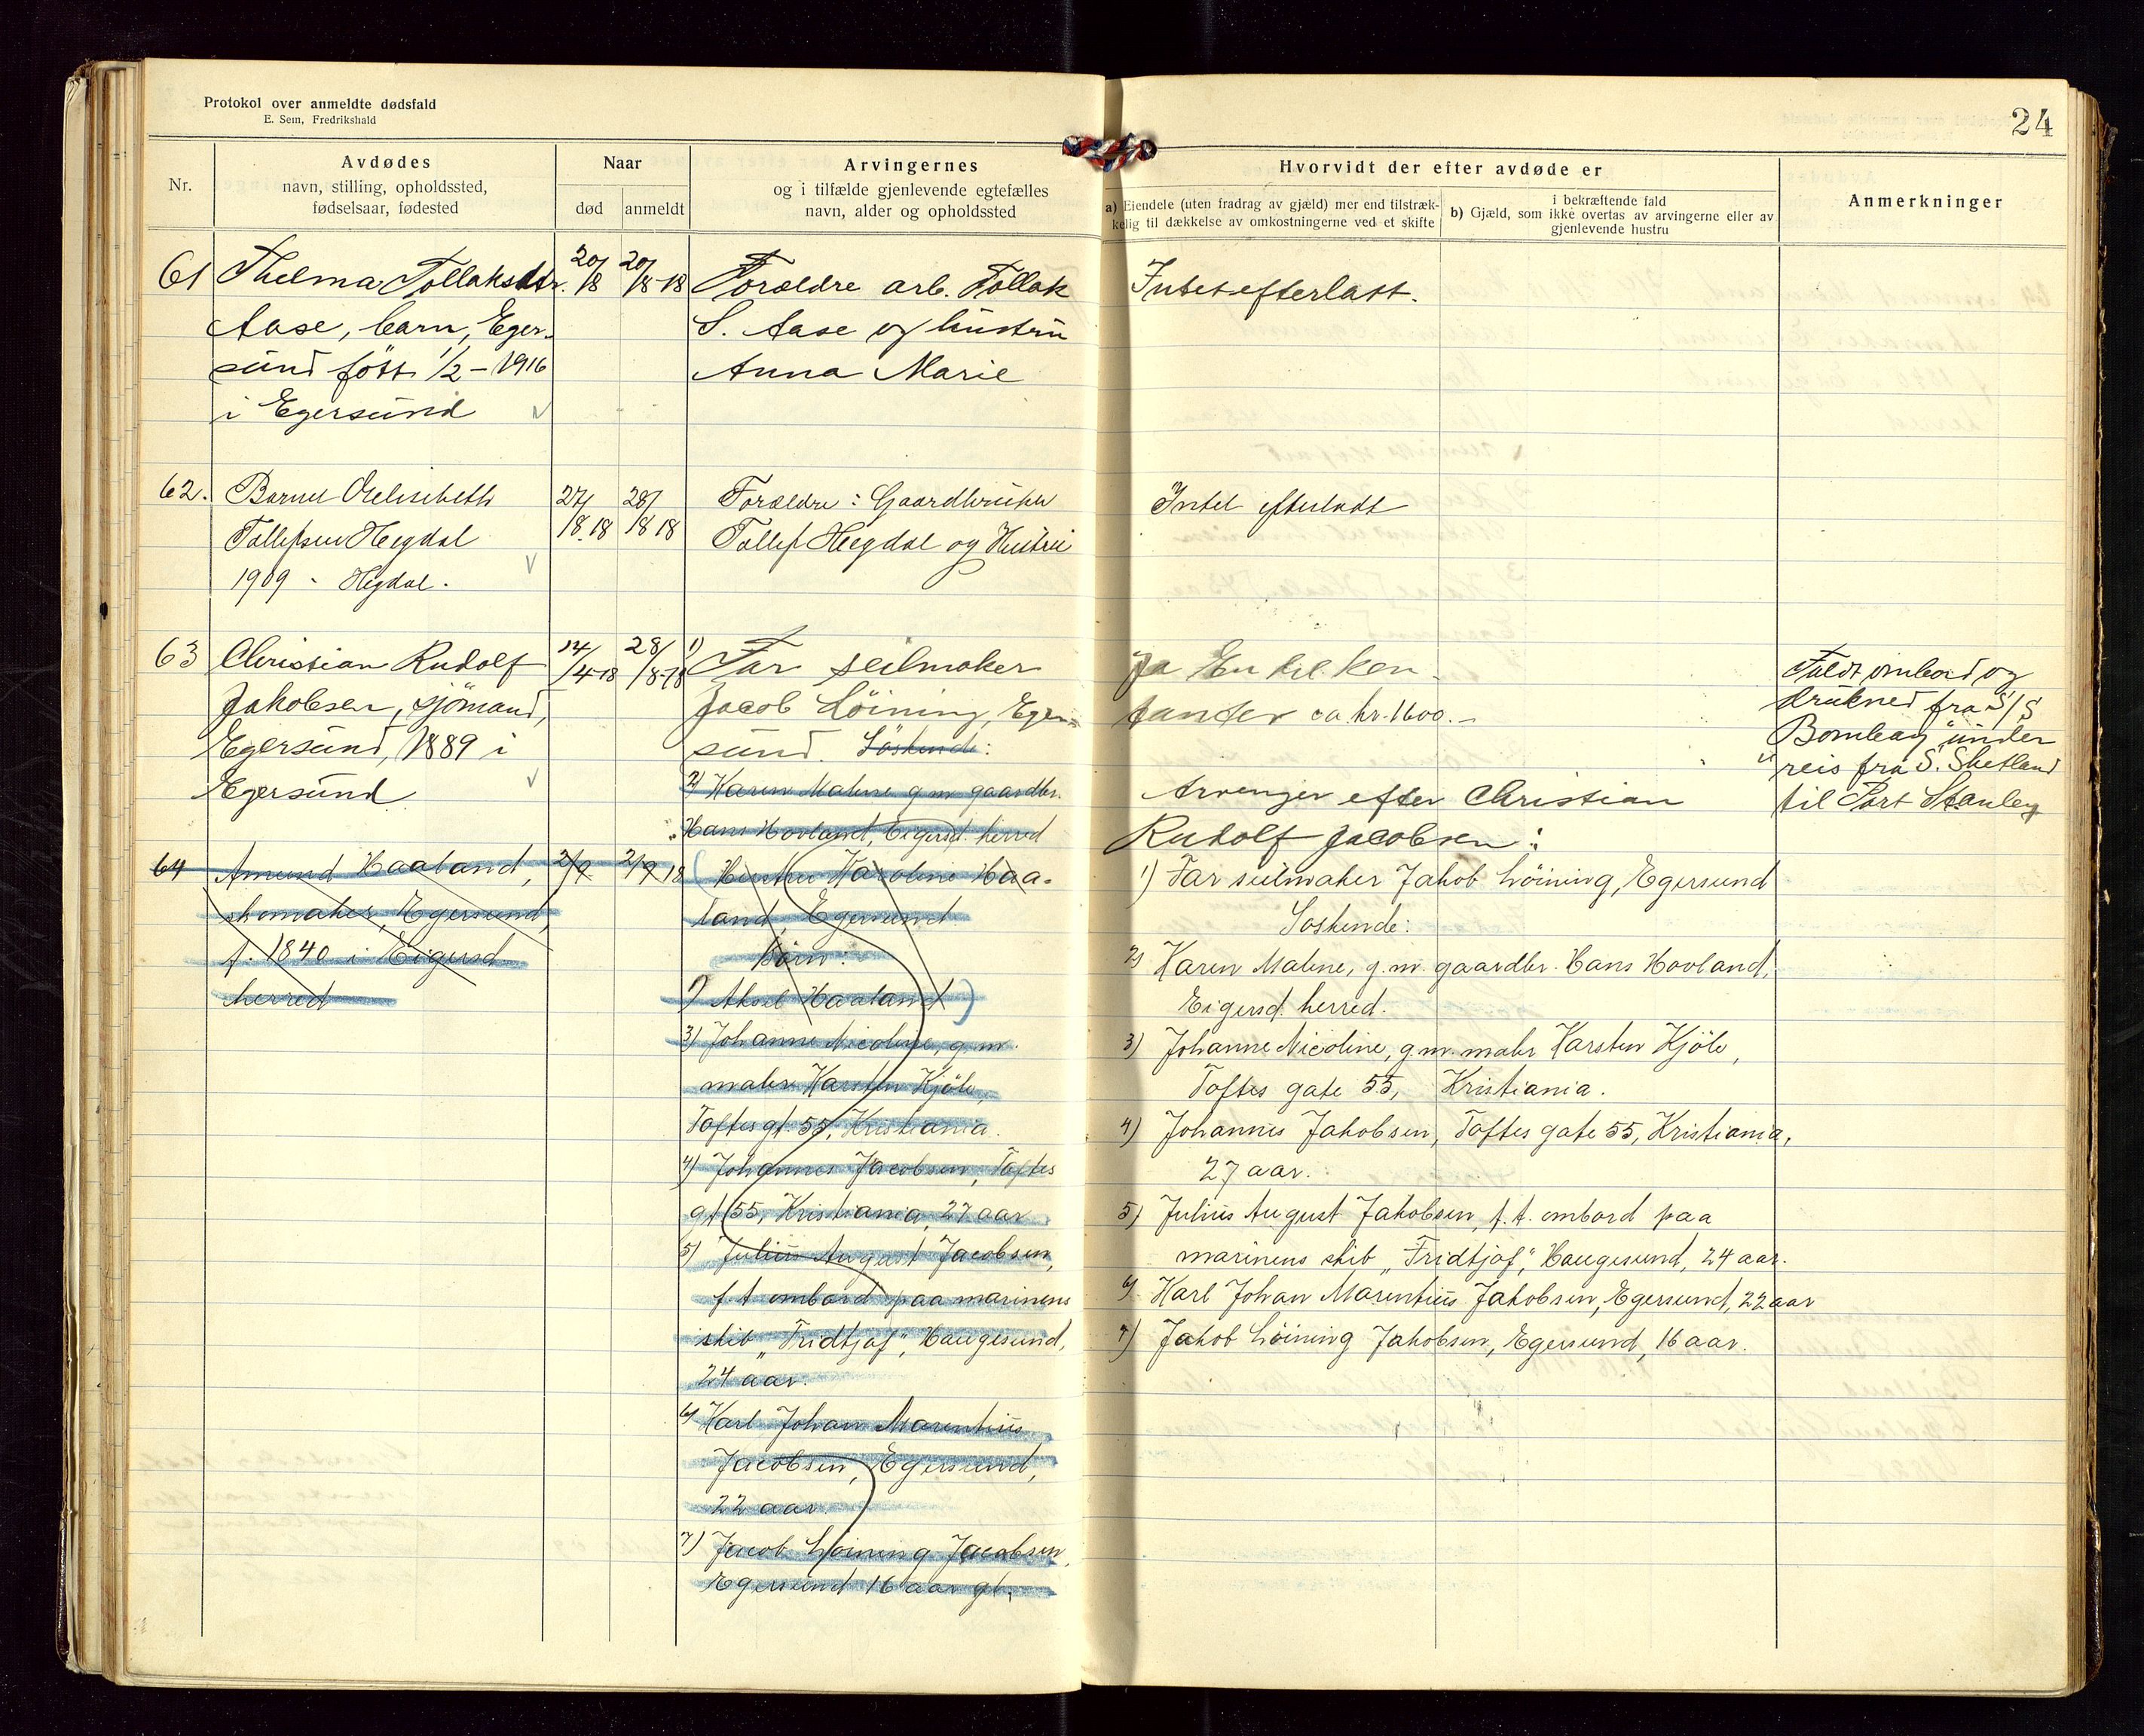 Protokol over anmeldte dødsfald
E. Sem, Fredrikshald
24
Nr.
Avdødes
navn, stilling, opholdssted,
fødselsaar, fødested
Naar
død
anmeldt
Arvingernes
og i tilfælde gjenlevende egtefælles
navn, alder og opholdssted
Hvorvidt der efter avdøde er
a) Eiendele (uten fradrag av gjæld) mer end tilstræk-
kelig til dækkelse av omkostningerne ved et skifte
i bekræftende fald
b) Gjæld, som ikke overtas av arvingerne eller av
gjenlevende hustru
Anmerkninger
61
Thelma Tollaksdtr.
Aase, barn, Eger-
sund født 1/2 - 1916
i Egersund
20/8
20/8-18
Forældre arb. Tollak
S. Aase og hustru
Anna Marie
Intet efterlatt.
62.
Barnet Elisebeth
Tollefsen Hegdal
1909 - Hegdal.
27/8.18
28/8 18
Forældre: Gaardbruker
Tollef Hegdal og Hustru
Intet efterladt
63
Christian Rudolf
Jakobsen, sjömand,
Egersund, 1889 i
Egersund
14/4-18
28/8-18
1) Far seilmaker
Jacob Löining, Eger-
sund. Söskende:
2) Karen Maline g.m. gaardbr.
Hans Hovland, Eigersd. herred
Ja En del kon-
tanter ca. kr. 1600.-
Faldt ombord og
drukned fra S/S
"Bombay" under
reis fra S. Shetland
til Port Stanley
64
Amund Haaland,
skomaker, Egersund,
f. 1840 i Eigersd
herred
2/9
2/9 18
Hustru Karoline Haa-
land, Egersund
Börn:
1) Aksel Haaland
3) Johanne Nicoline, g.m.
maler Karsten Kjöle,
Toftesgt. 55, Kristiania.
4) Johannes Jacobsen, Toftes
gt 55, Kristiania, 27 aar
5) Julius August Jacobsen,
f.t. ombord paa marinens
skib "Fridtjof", Haugesund,
24 aar.
6) Karl Johan Marentius
Jacobsen, Egersund,
22 aar.
7) Jacob Löining Jacobsen,
Egersund 16 aar gl.
Arvinger efter Christian
Rudolf Jacobsen:
1) Far seilmaker Jakob Löining, Egersund
Söskende:
2) Karen Maline, g.m. gaardbr. Hans Hovland,
Eigersd. herred.
3) Johanne Nicoline, g.m. maler Karsten Kjöle,
Toftes gate 55, Kristiania.
4) Johannes Jakobsen, Toftes gate 55, Kristiania,
27 aar.
5) Julius August Jakobsen, f.t. ombord paa
marinens skib "Fridtjof", Haugesund, 24 aar.
6) Karl Johan Marentius Jakobsen, Egersund, 22 aar
7) Jakob Löining Jakobsen, Egersund, 16 aar.